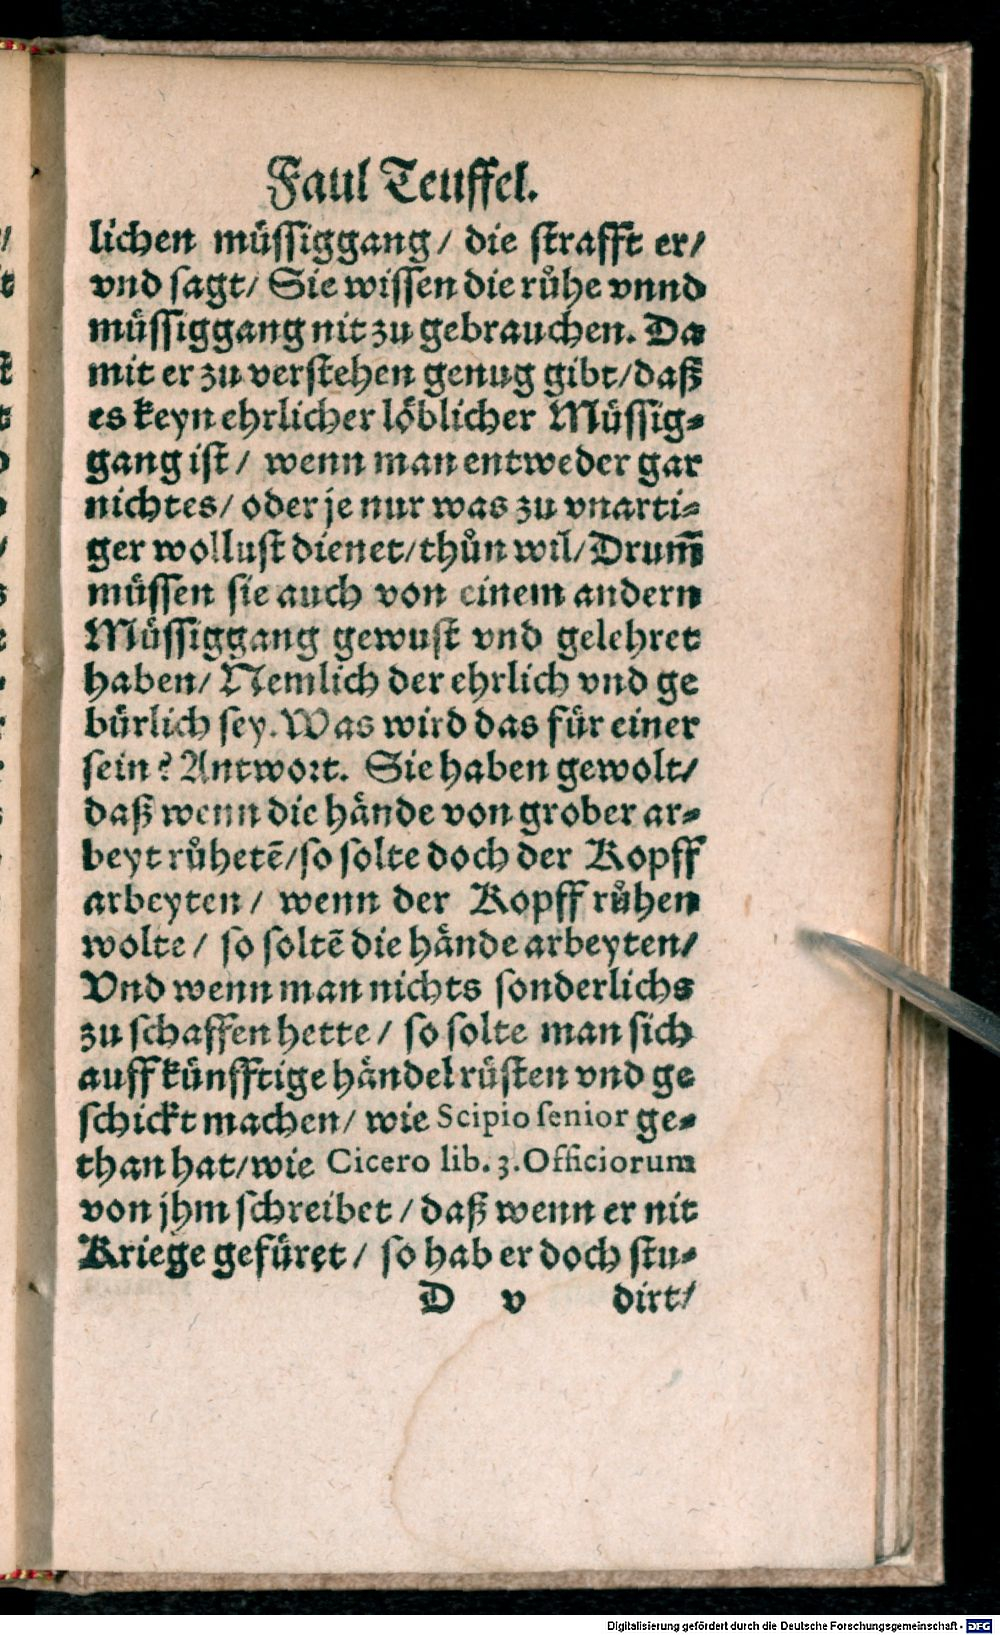 Faul Teuffel.
lichen müssiggang/ die strafft er/
vnd sagt/ Sie wissen die růhe vnnd
müssiggang nit zu gebrauchen. Da
mit er zu verstehen genug gibt/daß
es keyn ehrlicher löblicher Müssig-
gang ist/ wenn man entweder gar
nichtes/ oder je nur was zu vnarti-
ger wollust dienet/thůn wil/Drum̃
müssen sie auch von einem andern
Müssiggang gewust vnd gelehret
haben/ Nemlich der ehrlich vnd ge
bürlich sey. Was wird das für einer
sein? Antwort. Sie haben gewolt/
daß wenn die hände von grober ar-
beyt růhetẽ/so solte doch der Kopff
arbeyten/ wenn der Kopff růhen
wolte/ so soltẽ die hände arbeyten/
Vnd wenn man nichts sonderlichs
zu schaffen hette/ so solte man sich
auff künfftige händel rüsten vnd ge
schickt machen/ wie Scipio senior ge-
than hat/wie Cicero lib. 3. Officiorum
von jhm schreibet/ daß wenn er nit
Kriege gefüret/ so hab er doch stu-
D v dirt/
Digitalisierung gefördert durch die Deutsche Forschungsgemeinschaft - DFG